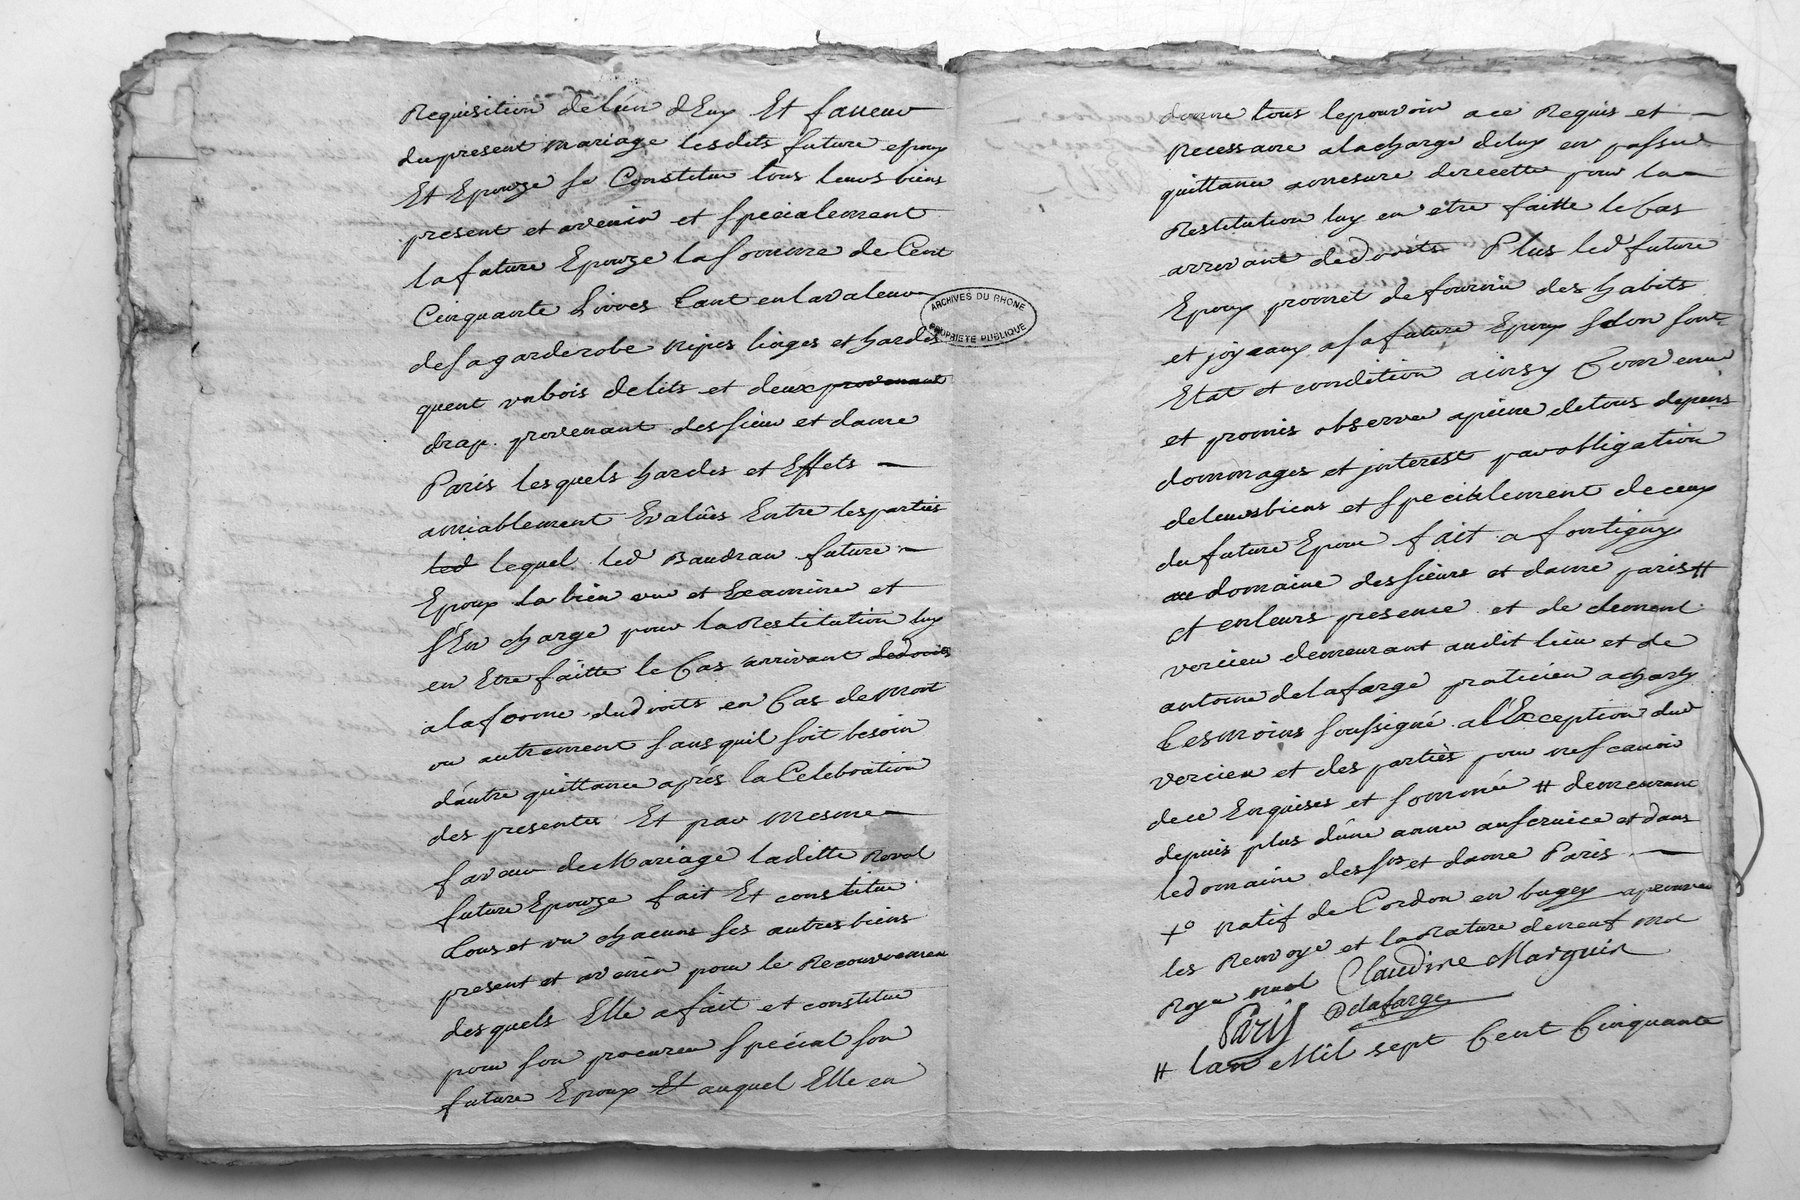 Requisition de lun d'Eux Et faveur
du present mariage lesdits future epoux
Et Epouze se Constitue tous leurs biens
present et avenir et specialement
la future Epouze la somme de Cent
Cinquante Livres tant en la valeur
de sa garderobe nipes linges et hardes
quent un bois de lits et deux provenant
drap. provenant des sieur et dame
Paris lesquels hardes et Effets
amiablement Evalués Entre les parties
led lequel led Baudran future
Epoux la bien vu et Examiné et
s'En charge pour la Restitution luy
en Etre faitte le Cas arrivant dedroits
a la forme du droits en Cas de mort
ou autrement sans quil soit besoin
d'autre quittance aprés la Celebration
des presentes Et par mesme
faveur de Mariage laditte Revol
future Epouze fait Et constitue
tous et un chacuns ses autres biens
present et avenir pour le Recouvremen
desquels Elle a fait et constitue
pour son procureur special son
future Epoux Et auquel Elle en
donne tous le pouvoir a ce Requis et
necessaire a la charge de luy en passer
quittance a mesure de recette pour la
Restitution luy en etre faitte le Cas
arrivant de droits Plus led future
Epoux promet de fournir des habits
et joyeaux a sa future Epoux selon son
Etat et condition ainsy Convenu
et promis observer a peine de tous depens
dommages et jnterest par obligation
de leurs biens et specialement de ceux
du future Epoux fait a fontigny
au domaine des sieurs et dame paris #
et en leurs presence et de clement
vercieu demeurant audit lieu et de
antoine delafarge praticien a charly
tesmoins soussigné a l'Exception dud
vercieu et des parties pour ne scavoir
de ce Enquises et sommée # demeurant
depuis plus d'une année au service et dans
le domaine des srs et dame Paris
+o natif de Cordon en bugey aprouve
les Renvoye et la Rature de neuf mot
Raye nuol Claudine Marguin
Paris Delafarge
# lan Mil sept Cent Cinquante
ARCHIVES DU RHONE
PROPRIETE PUBLIQUE